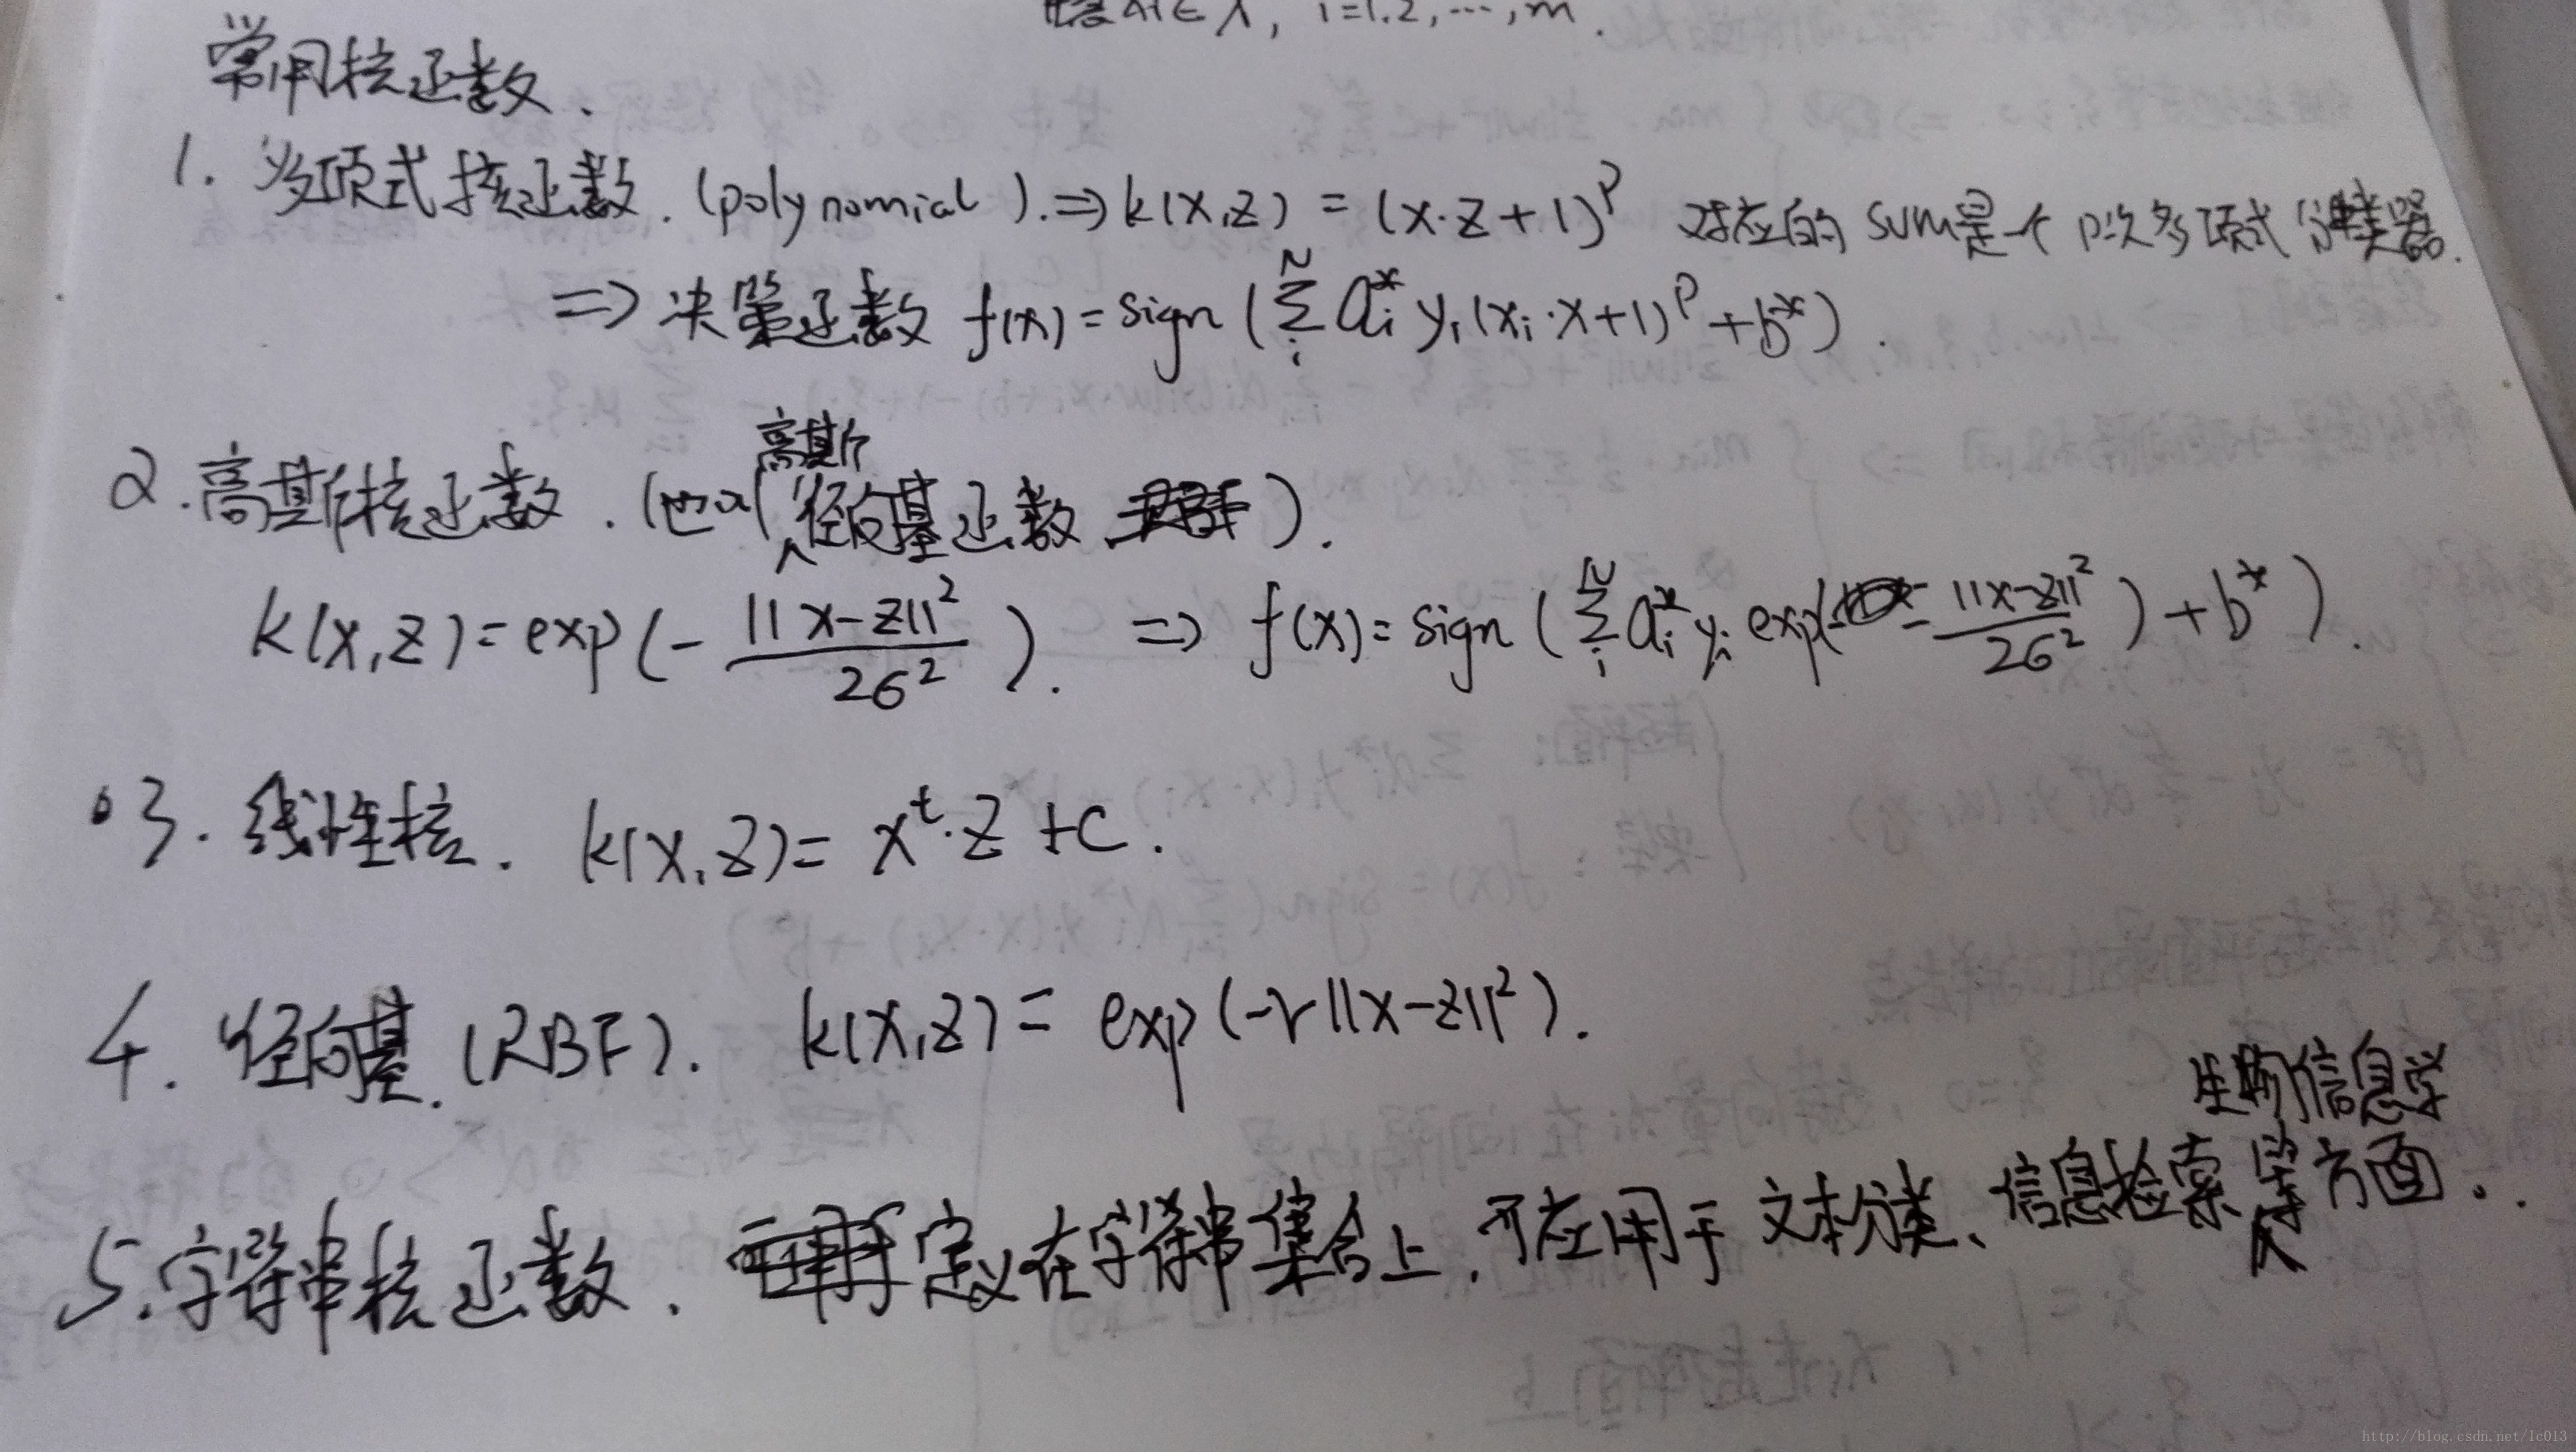 i=1.2,…,m.
常用核函数.
1. 多项式核函数.(polynomial).⇒k(x,z)=(x·z+1)^p 对应的sum是一个p次多项式分类器.
⇒决策函数 f(x)=sign(∑_i^N a_i^* y_i(x_i·x+1)^p+b^*).
2.高斯核函数.(也叫高斯径向基函数).
k(x,z)=exp(-||x-z||^2/2σ^2). ⇒ f(x)=sign(∑_i^N a_i^* y_i exp(-||x-z||^2/2σ^2)+b^*).
3. 线性核. k(x,z)=x^t·z+c.
4. 径向基.(RBF). k(x,z)=exp(-r||x-z||^2).
5.字符串核函数. 定义在字符串集合上,可应用于文本分类、信息检索、生物信息学等方面.
http://blog.csdn.net/lc013